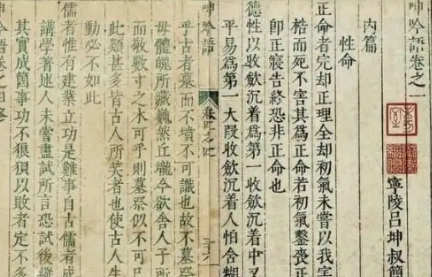 呻吟語卷之一
寧陵呂坤叔簡
內篇
性命
正命者完却正理全却初氣未嘗以我
梏而死不害其爲正命若初氣鑿喪正
卽正寢告終恐非正命也
德性以收歛沉着爲第一收歛沉着中又
平易爲第一大段收歛沉着人怕含糊
呻吟語
乎古者墓而不墳不可識也故不墓祭
母體魄所藏巍然丘壠今欲舍人子所
而敬數寸之木可乎則墓祭似不可
此類甚多皆古人所笑者也使古人生
動必不如此
儒者惟有建業立功是難事自古儒者成
講學著述人未嘗盡試所言恐試後縱
其實成箇事功不狼狽以敗者定不多